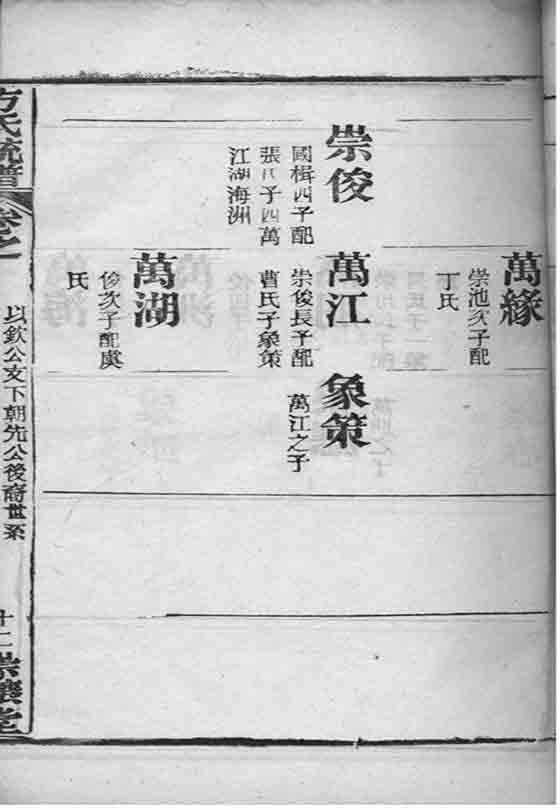 萬緣
崇池次子配
丁氏
崇俊
國楫四子配
張氏子四萬
江湖海洲
萬江
崇俊長子配
曹氏子象策
象策
萬江之子
萬湖
俊次子配虞
氏
方氏統譜
卷之一
以欽公支下朝先公後裔世系
十二
堂